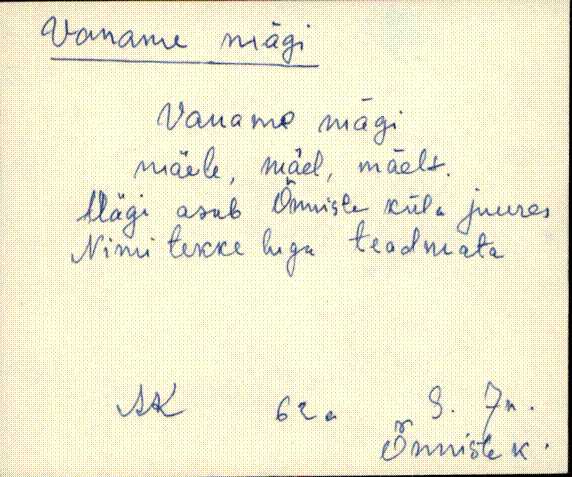 Vaname mägi
Vaname mägi
mäele, mäel, mäelt.
Mägi asub Õnniste küla juures
Nimi tekke lugu teadmata
AK 62a
Õnniste k.